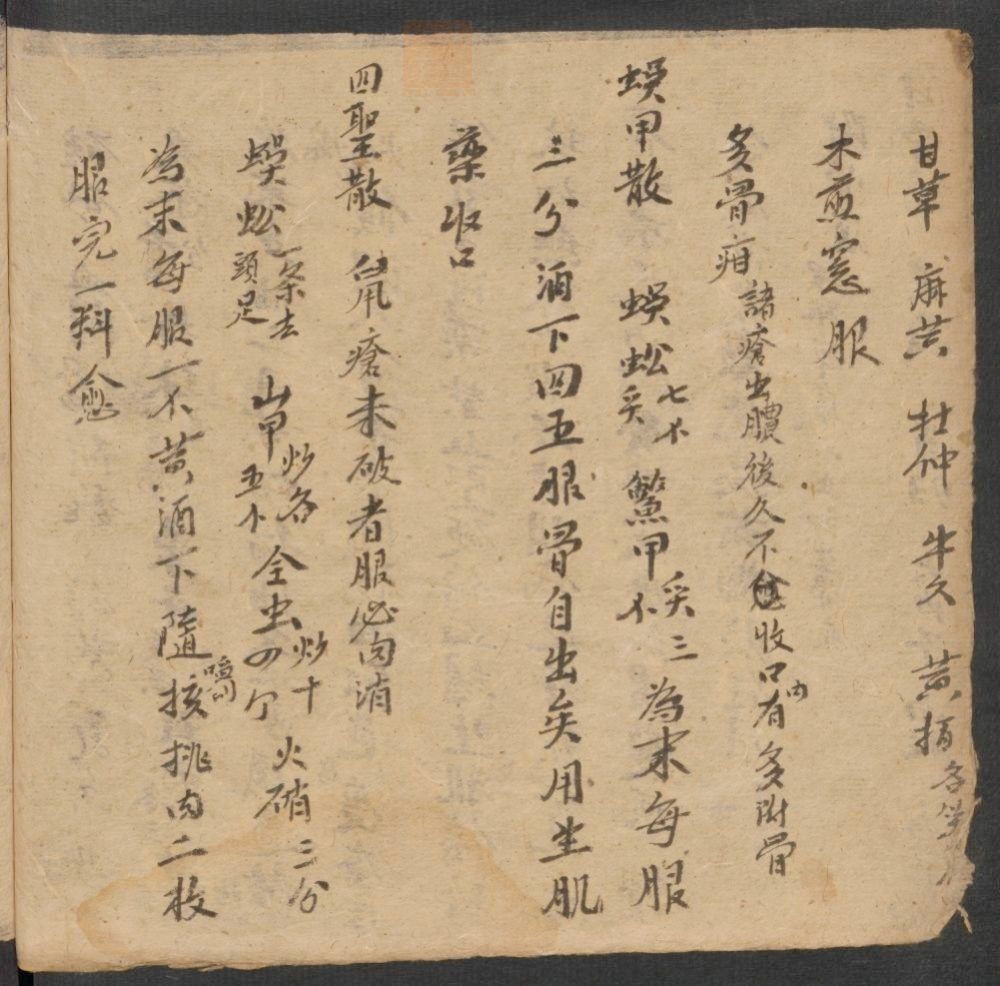 甘草 麻黄 杜仲 牛夕 黄栢各等
木煎窓服
多骨疳 諸瘡出膿後久不愈收口内有多附骨
蜈甲散 蜈蚣七个炙 鱉甲炙三个 為末每服
三分 酒下四五服骨自出矣用生肌
藥收口
四聖散 鼠瘡未破者服必内消
蜈蚣一条去頭足 山甲炒各五个 全虫炒十四个 火硝三分
為末每服一个黄酒下隨嚼核桃肉二枚
服完一料愈